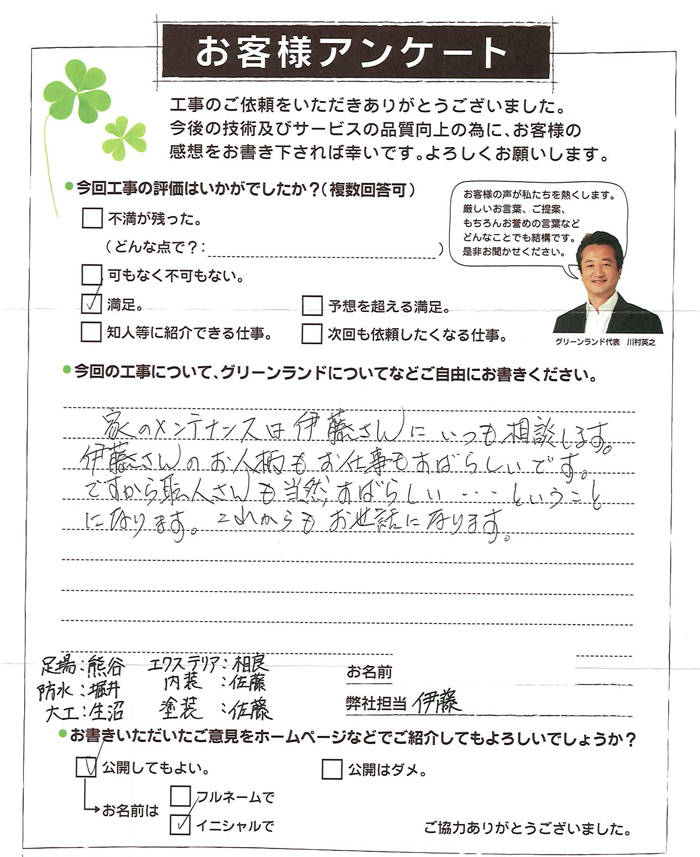 お客様アンケート
工事のご依頼をいただきありがとうございました。
今後の技術及びサービスの品質向上の為に、お客様の
感想をお書き下されば幸いです。よろしくお願いします。
今回工事の評価はいかがでしたか？(複数回答可)
不満が残った。
(どんな点で？: )
可もなく不可もない。
満足。
予想を超える満足。
知人等に紹介できる仕事。
次回も依頼したくなる仕事。
お客様の声が私たちを熱くします。
厳しいお言葉、ご提案、
もちろんお誉めの言葉など
どんなことでも結構です。
是非お聞かせください。
グリーンランド代表 川村英之
今回の工事について、グリーンランドについてなどご自由にお書きください。
家のメンテナンスは伊藤さんにいつも相談します。
伊藤さんのお人柄もお仕事もすばらしいです。
ですから職人さんも当然すばらしい…ということ
になります。これからもお世話になります。
足場:熊谷 エクステリア:相良
防水:堀井 内装:佐藤
大工:生沼 塗装:佐藤
お名前
弊社担当 伊藤
お書きいただいたご意見をホームページなどでご紹介してもよろしいでしょうか？
公開してもよい。
公開はダメ。
お名前は
フルネームで
イニシャルで
ご協力ありがとうございました。